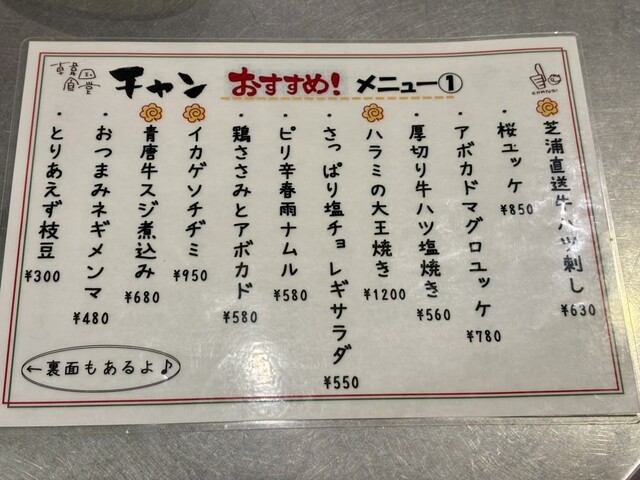 韓国食堂
チャン おすすめ! メニュー①
芝浦直送牛ハツ刺し ¥630
・桜ユッケ ¥850
・アボカドマグロユッケ ¥780
・厚切り牛ハツ塩焼き ¥560
ハラミの大王焼き ¥1200
・さっぱり塩チョレギサラダ ¥550
・ピリ辛春雨ナムル ¥580
・鶏ささみとアボカド ¥580
イカゲソチヂミ ¥950
青唐牛スジ煮込み ¥680
・おつまみネギメンマ ¥480
・とりあえず枝豆 ¥300
←裏面もあるよ♪